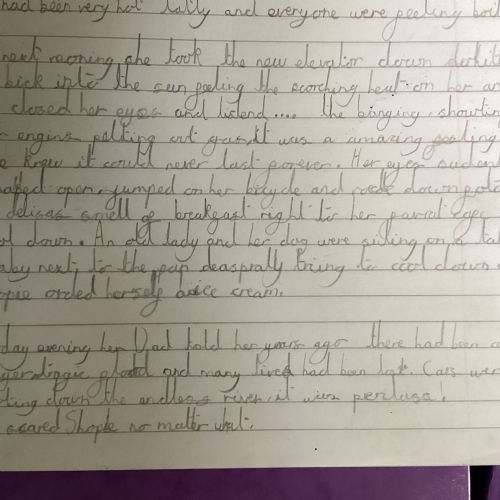 had been very hot latly and everyone were feeling boil
next morning she took the new elevator down
bick into the sun feeling the scorching heat on her ar
closed her eyes and listend.... the binging, showting
engins petting out gas, it was a amazing feeling
knew it could never last forever. Her eyes sudden
open. jumped on her bicycle and rode down
delicas smell of breakfast right to her favrit cafe
down. An old lady and her dog were siting on a tab
next to the fan deaspratly tring to cool down
orded herself a ice cream.
day evening her Dad told her years ago there had been a
and many lives had been lost. Cars wer
ting down the endless river, it was
scared Shopie no matter what.